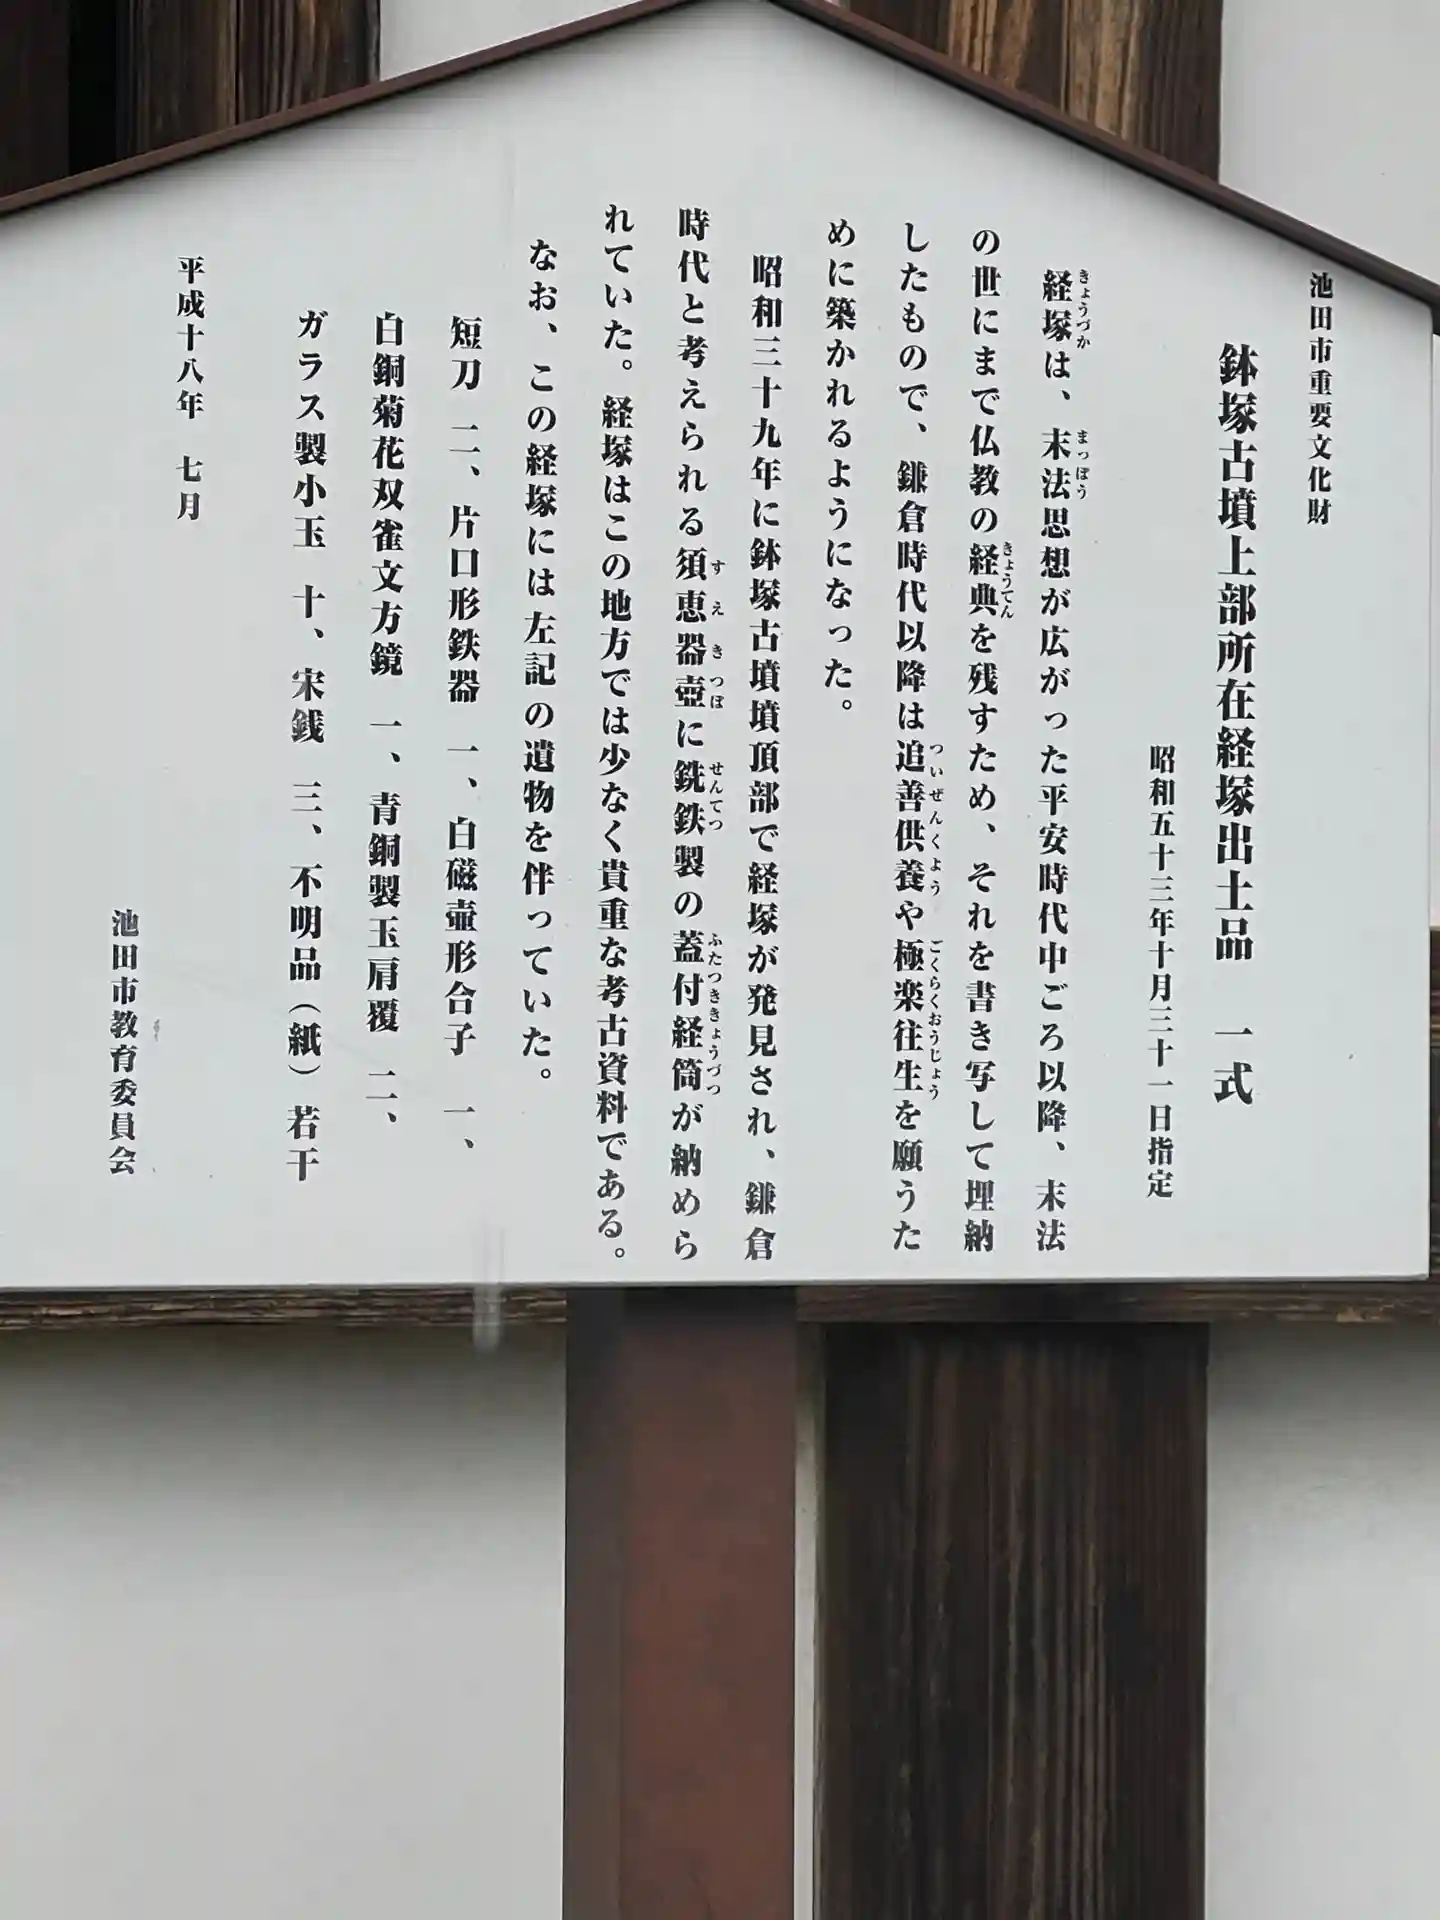 池田市重要文化財
鉢塚古墳上部所在経塚出土品　一式
昭和五十三年十月三十一日指定
経塚は、末法思想が広がった平安時代中ごろ以降、末法
きょうづか　まっぽう
の世にまで仏教の経典を残すため、それを書き写して埋納
きょうてん
したもので、鎌倉時代以降は追善供養や極楽往生を願うた
ついぜんくよう　ごくらくおうじょう
めに築かれるようになった。
昭和三十九年に鉢塚古墳墳頂部で経塚が発見され、鎌倉
時代と考えられる須恵器壺に銑鉄製の蓋付経筒が納めら
すえきつぼ　せんてつ　ふたつききょうづつ
れていた。経塚はこの地方では少なく貴重な考古資料である。
なお、この経塚には左記の遺物を伴っていた。
短刀　二、片口形鉄器　一、白磁壷形合子　一、
白銅菊花双雀文方鏡　一、青銅製玉肩覆　二、
ガラス製小玉　十、宋銭　三、不明品（紙）若干
平成十八年　七月
池田市教育委員会